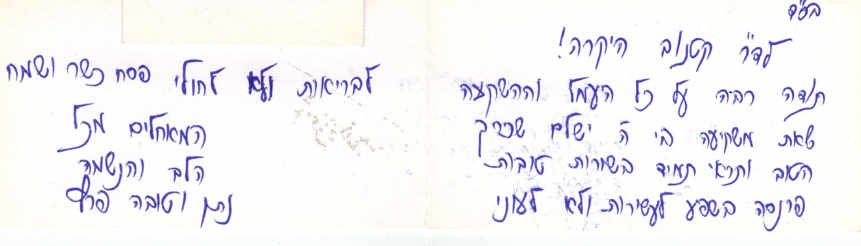 בס״ד
לד״ר קטנוב היקרה!
תודה רבה על כל העמל וההשקעה
שאת משקיעה בי ה' ישלם שכרך
הטוב ותראי תמיד בשורות טובות
פרנסה בשפע לעשירות ולא לעוני
לבריאות ולא לחולי פסח כשר ושמח
המאחלים מכל
הלב והנשמה
נתן וטובה